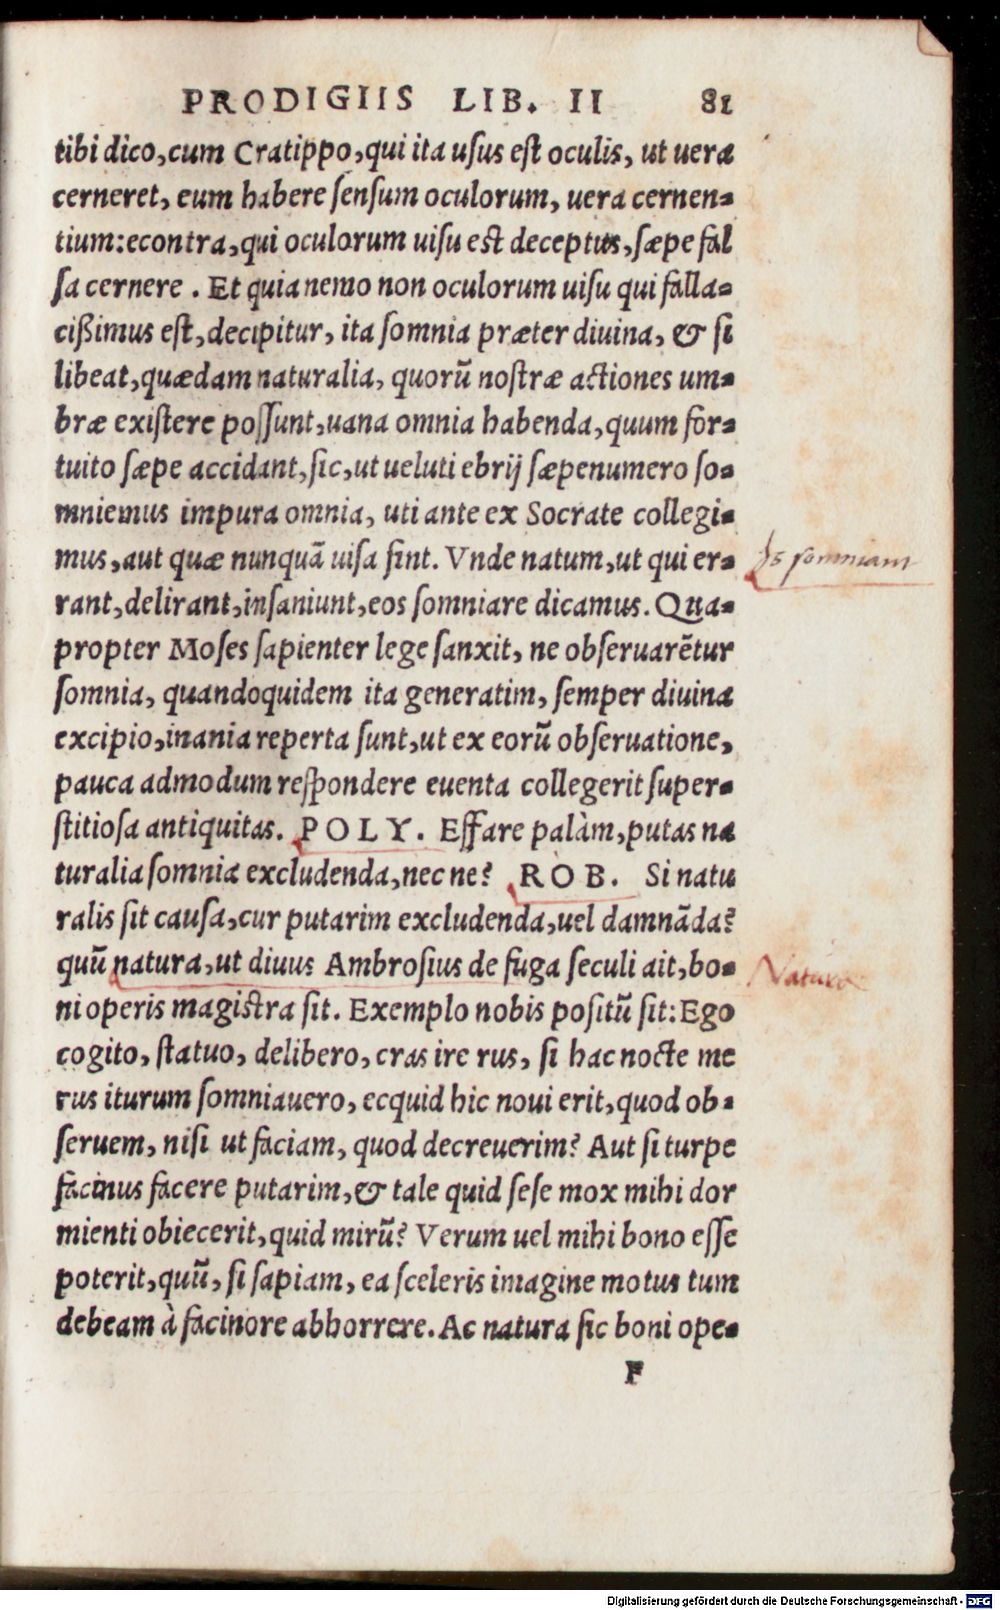 PRODIGIIS LIB. II 81
tibi dico,cum Cratippo,qui ita usus est oculis, ut uera
cerneret, eum habere sensum oculorum, uera cernen-
tium:econtra,qui oculorum uisu est deceptus,sæpe fal
sa cernere . Et quia nemo non oculorum uisu qui falla-
cißimus est,decipitur, ita somnia præter diuina, & si
libeat,quædam naturalia, quorũ nostræ actiones um-
bræ existere possunt,uana omnia habenda,quum for-
tuito sæpe accidant,sic,ut ueluti ebrij sæpenumero so-
mniemus impura omnia, uti ante ex Socrate collegi-
mus,aut quæ nunquã uisa sint. Vnde natum,ut qui er-
somniant
rant,delirant,insaniunt,eos somniare dicamus. Qua-
propter Moses sapienter lege sanxit, ne obseruarẽtur
somnia, quandoquidem ita generatim, semper diuina
excipio,inania reperta sunt,ut ex eorũ obseruatione,
pauca admodum respondere euenta collegerit super-
stitiosa antiquitas. POLY. Effare palàm,putas na
turalia somnia excludenda,nec ne? ROB. Si natu
ralis sit causa,cur putarim excludenda,uel damnãda?
quũ natura,ut diuus Ambrosius de fuga seculi ait,bo-
Natura
ni operis magistra sit. Exemplo nobis positũ sit:Ego
cogito, statuo, delibero, cras ire rus, si hac nocte me
rus iturum somniauero, ecquid hic noui erit,quod ob-
seruem, nisi ut faciam, quod decreuerim? Aut si turpe
facinus facere putarim,& tale quid sese mox mihi dor
mienti obiecerit,quid mirũ? Verum uel mihi bono esse
poterit,quũ, si sapiam, ea sceleris imagine motus tum
debeam à facinore abhorrere. Ac natura sic boni ope-
F
Digitalisierung gefördert durch die Deutsche Forschungsgemeinschaft - DFG